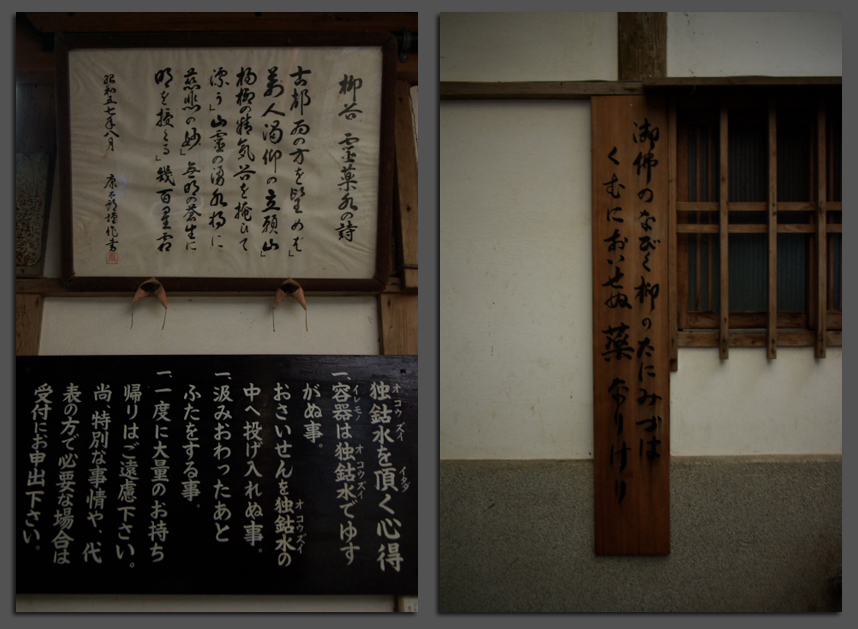 柳谷 霊薬水の詩
古都西の方を望めば」
萬人渇仰の立願山」
楊柳の精気谷を掩ひて
漂う」山霊の湧水に
慈悲の妙」無明の蒼生に
明を授くる」幾百星霜
昭和五七年八月 作書
独鈷水を頂く心得
オコウズイ イタダ
一、容器は独鈷水でゆす
イレモノ オコウズイ
がぬ事。
おさいせんを独鈷水の
オコウズイ
中へ投げ入れぬ事。
一、汲みおわったあと
ふたをする事。
一、一度に大量のお持ち
帰りはご遠慮下さい。
尚、特別な事情や、代
表の方で必要な場合は
受付にお申出下さい。
御佛のなびく柳のたにみづは
くむにおいせぬ薬なりけり